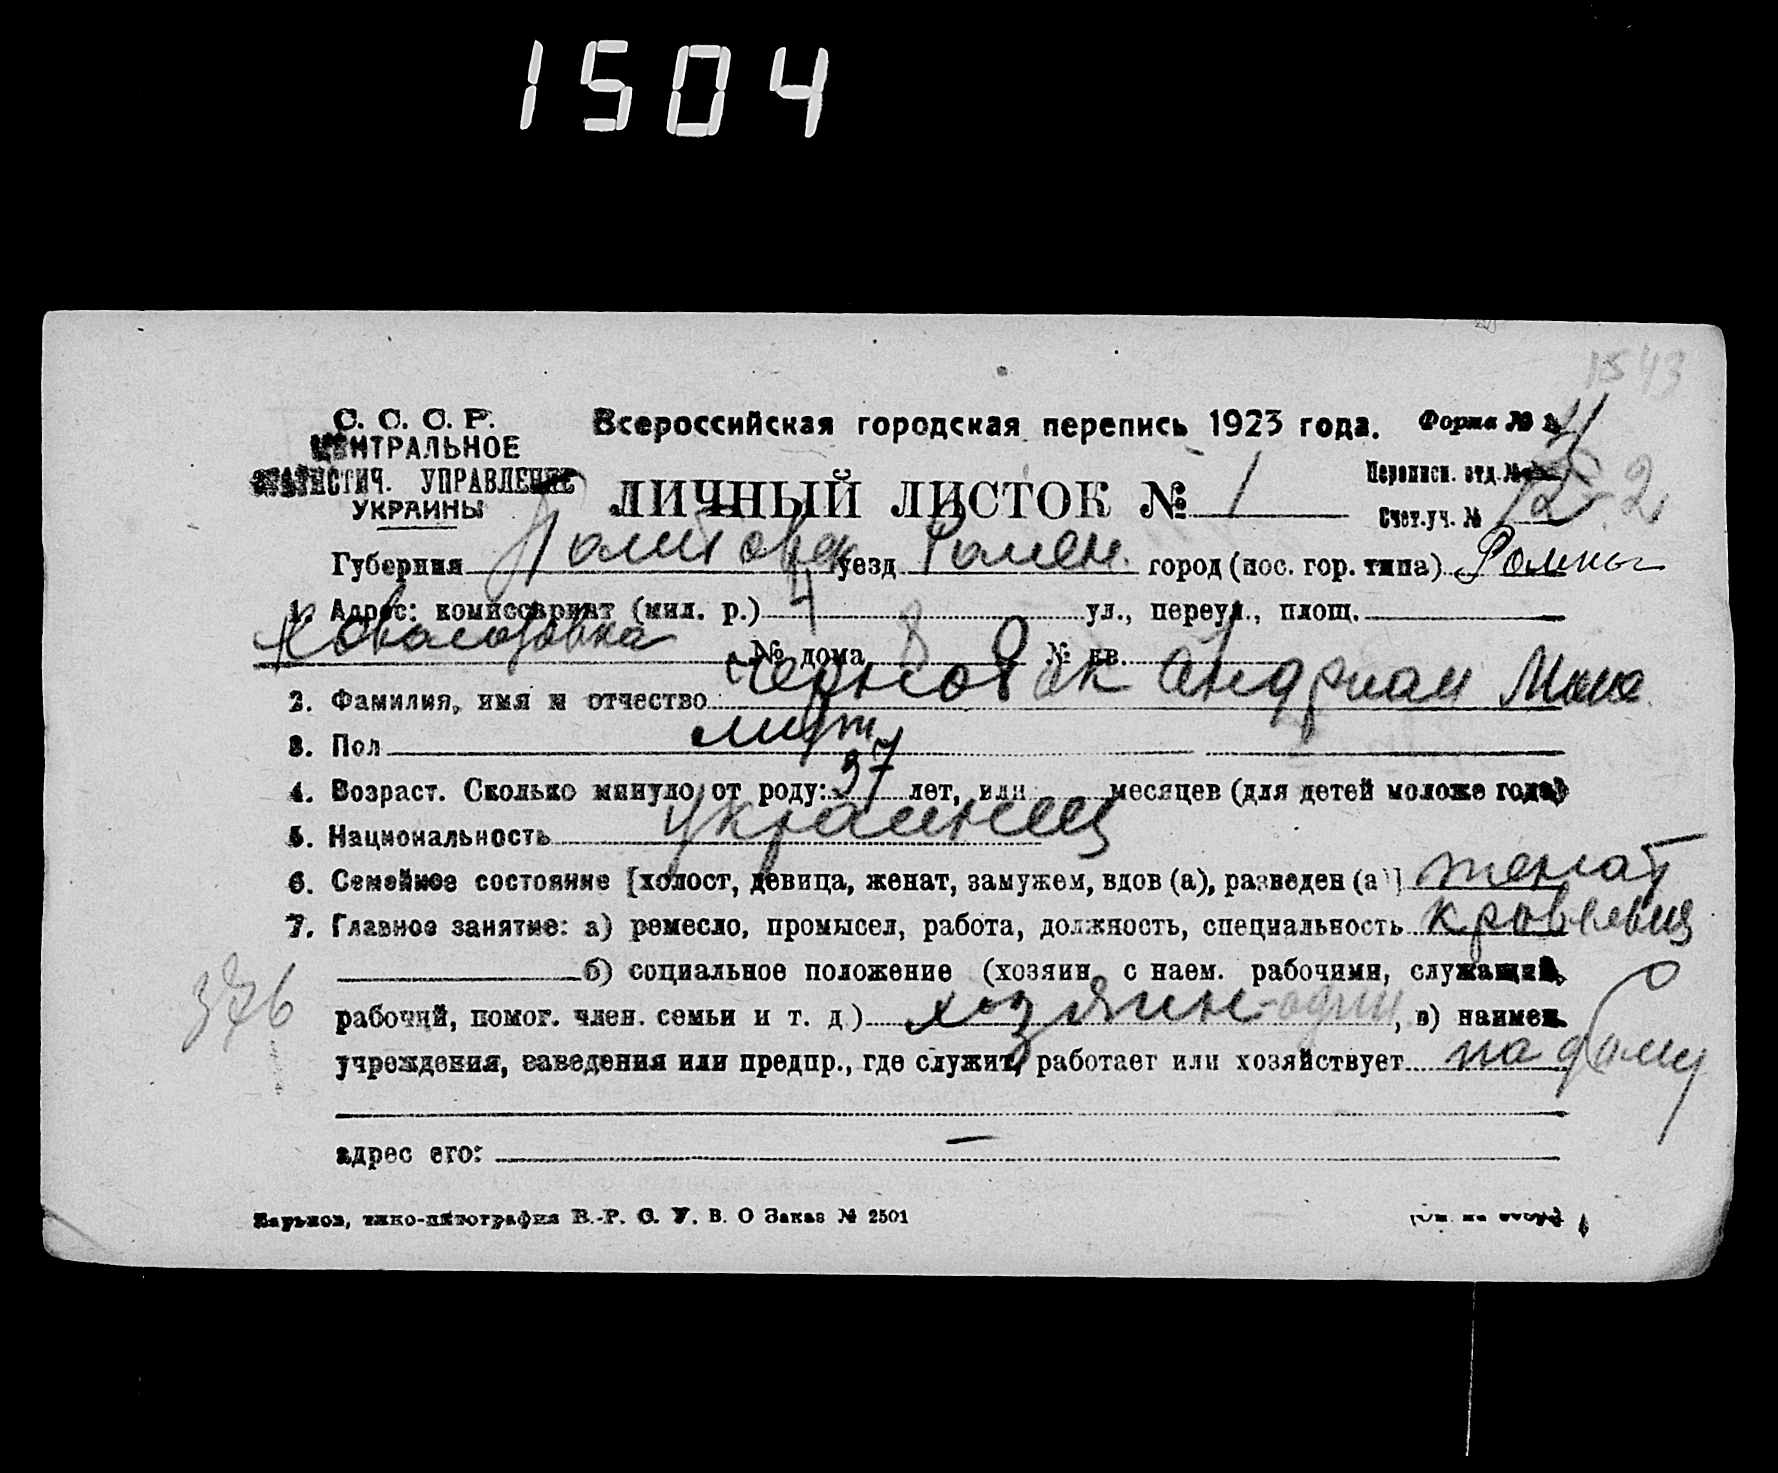 1504
1543
С. С. С. Р.
ЦЕНТРАЛЬНОЕ
СТАТИСТИЧ. УПРАВЛЕНИЕ
УКРАИНЫ
Всероссийская городская перепись 1923 года. Форма №
ЛИЧНЫЙ ЛИСТОК № 1
Переписн. отд. №
Счет. уч. № 2
Губерния Полтовск уезд Ромен. город (пос. гор. типа) Ромны
1. Адрес: комиссариат (мил. р.) 4 ул., переул., площ.
№ дома 8 № кв.
2. Фамилия, имя и отчество Андриан
3. Пол муж
4. Возраст. Сколько минуло от роду: 37 лет, или месяцев (для детей моложе года)
5. Национальность украинец
6. Семейное состояние [холост, девица, женат, замужем, вдов (а), разведен (а)] женат
7. Главное занятие: а) ремесло, промысел, работа, должность, специальность
б) социальное положение (хозяин с наем. рабочими, служащий,
376
рабочий, помог. член. семьи и т. д) хозяин-один, в) наимен.
учреждения, заведения или предпр., где служит, работает или хозяйствует на дому
адрес его: —
Харьков, типо-литография В.-Р. С. У. В. О Заказ № 2501